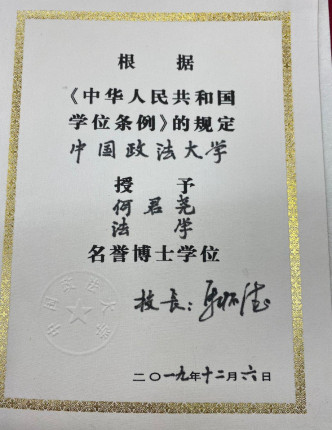 根据
《中华人民共和国
学位条例》的规定
中国政法大学
授予
何君尧
法学
名誉博士学位
校长：
二〇一九年十二月六日